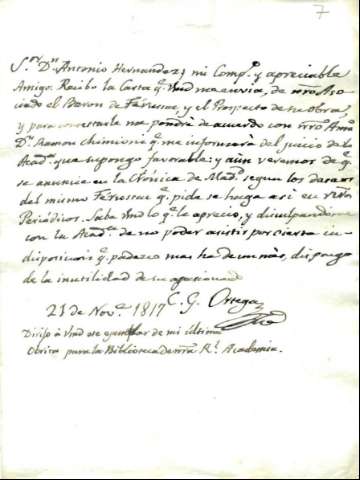 7
S.ʳ D.ⁿ Antonio Hernandez; mi Comp.º y apreciable
Amigo. Recibo la Carta q.ᵉ Vmd me envia, de nr̃o Aso-
ciado el Baron de Férussac, y el Prospecto de su obra,
y para contestarle me pondré de acuerdo con nr̃o Am.º
D.ⁿ Ramon chimioni q.ᵉ me informará del juicio de la
Acad.ª que supongo favorable: y aun veremos de q.ᵉ
se anuncie en la Crónica de Mad.ᵈ segun los deseos
del mismo Férussac q.ᵉ pide se haga asi en nr̃os
Periódicos. Sabe Vmd lo q.ᵉ le aprecio, y disculpandome
con la Acad.ª de no poder asistir por cierta in-
disposicion q.ᵉ padezco mas ha de un mes, disponga
de la inutilidad de su apasionado
21 de Nov.ᵉ 1817 C. G. Ortega
Dirijo á Vmd ese ejemplar de mi última
Obrita para la Biblioteca de nr̃a R.ˡ Academia.